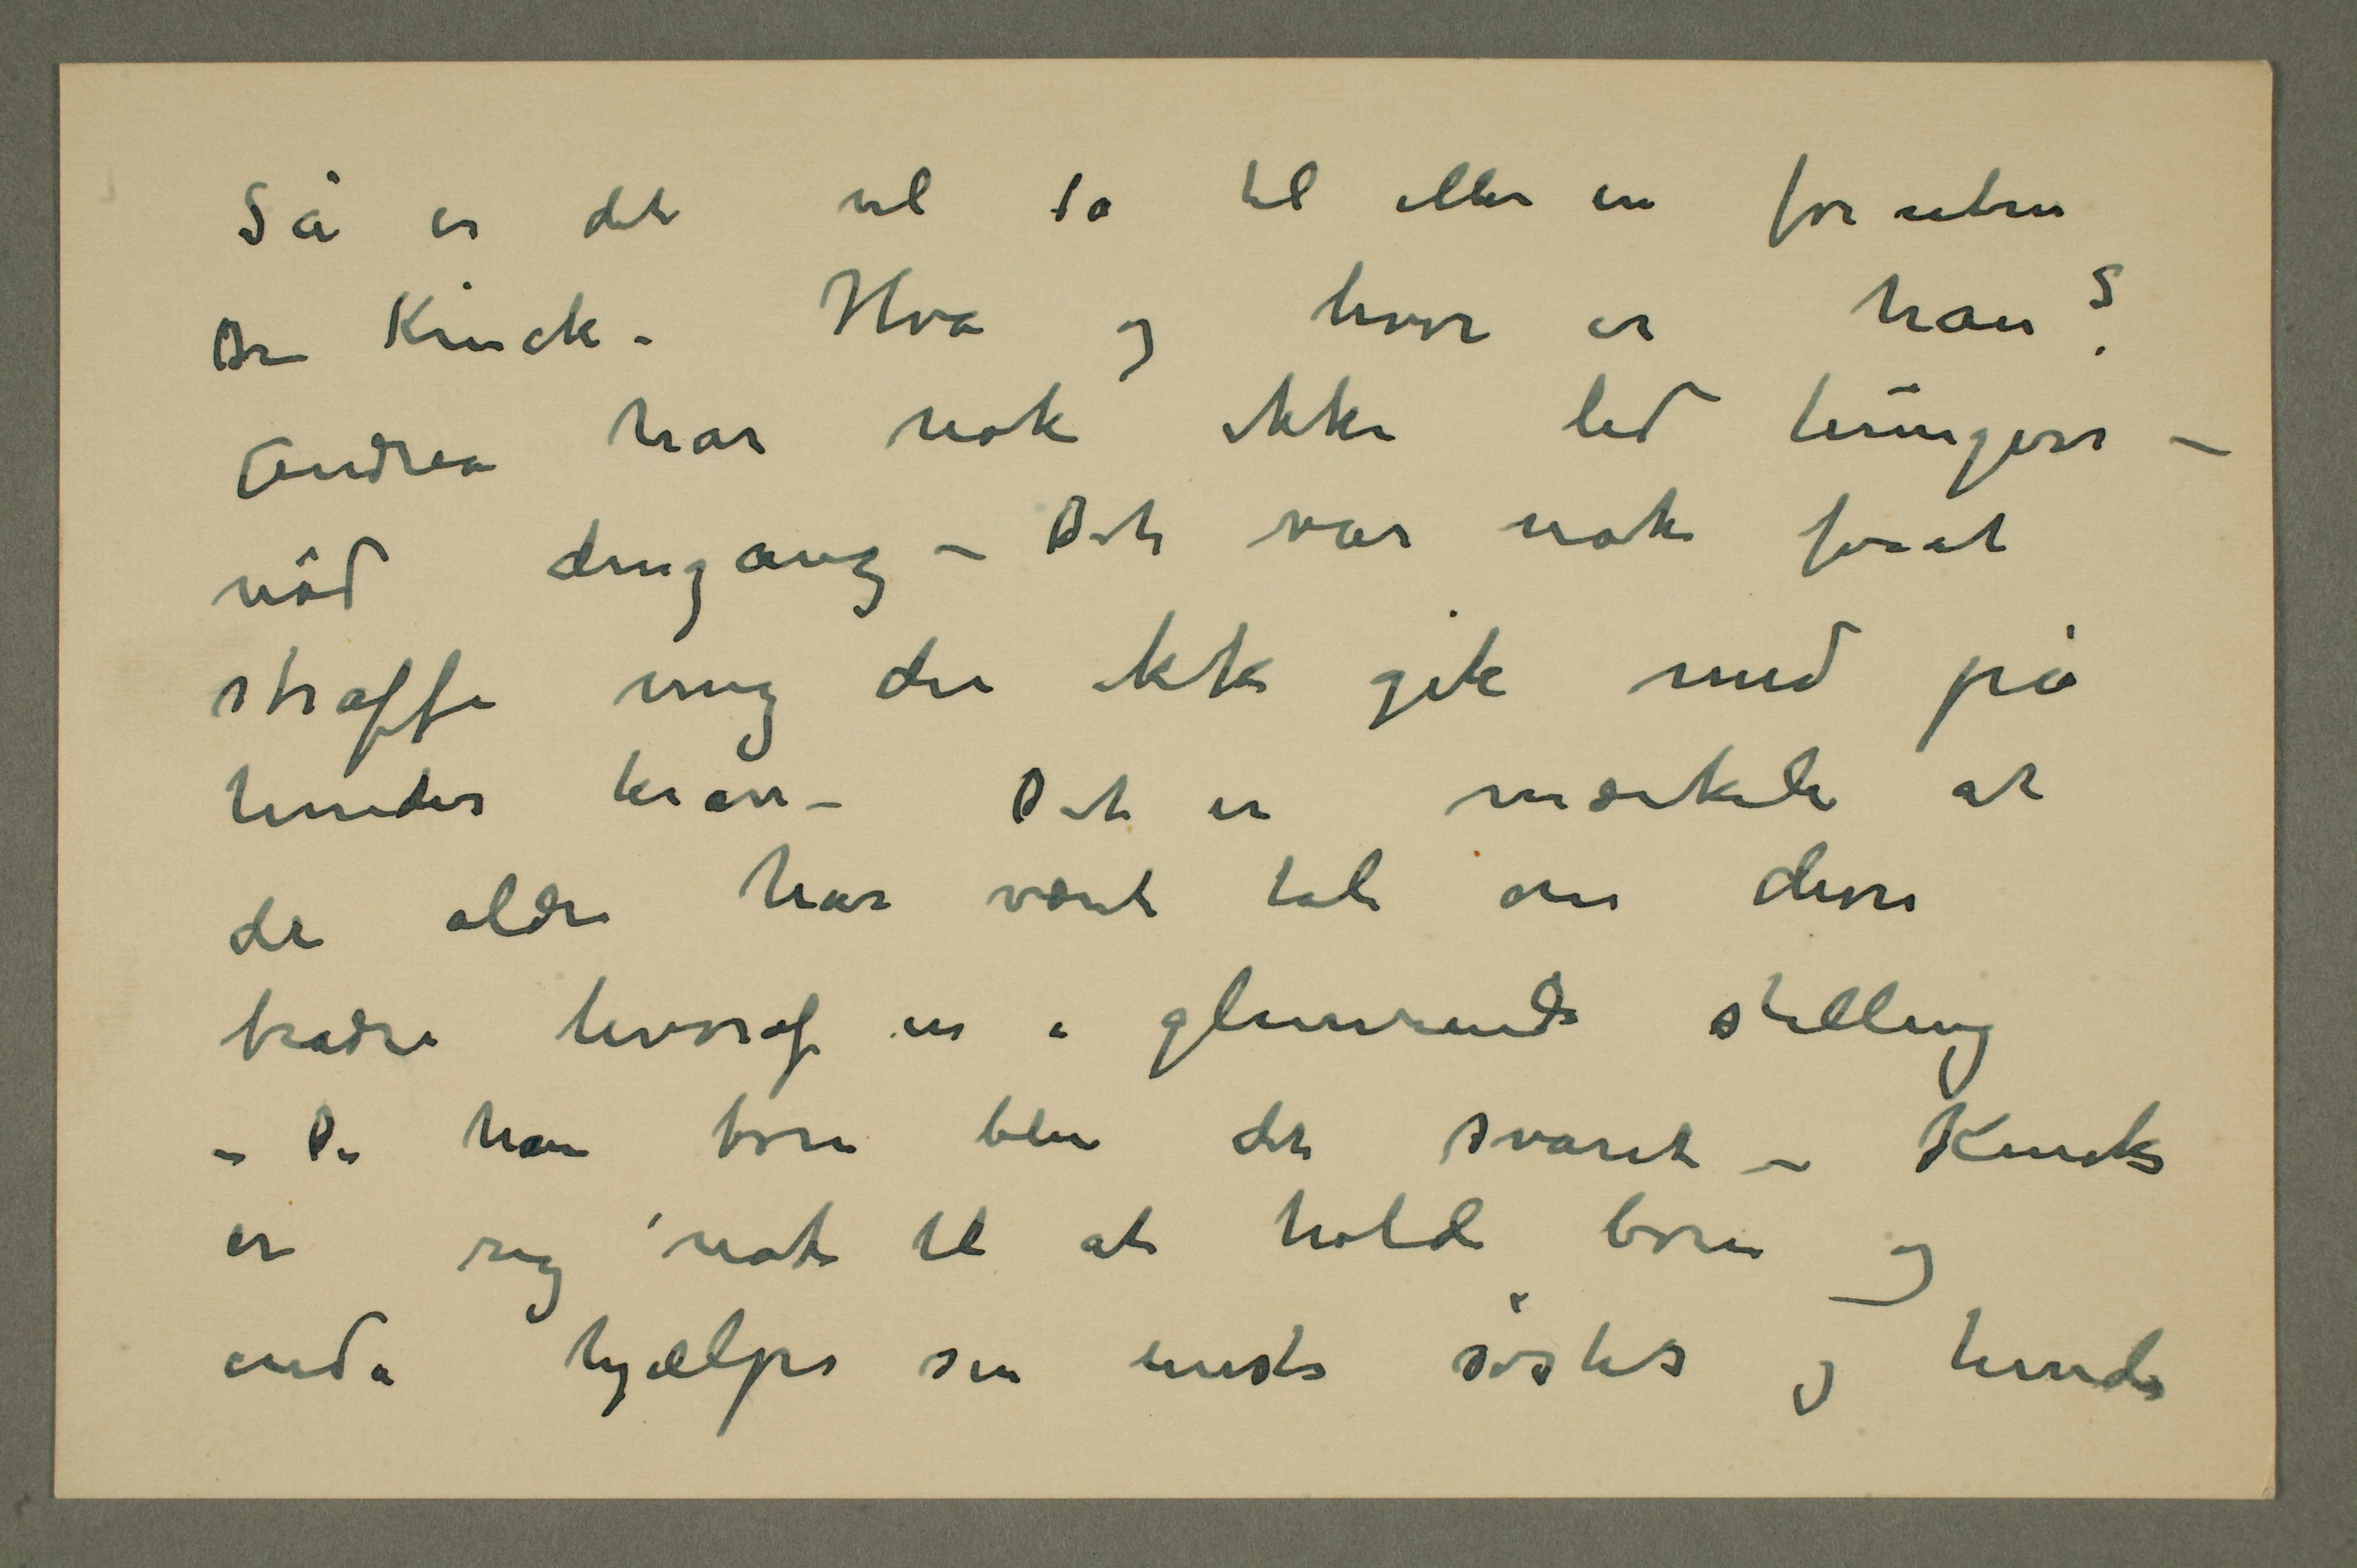 Så er det vel to til eller en foruten
Dr Kinck – Hva og hvor er han?
Andrea har nok ikke led hunger –
nöd dengang – Det var nok forat
straffe mig der ikke gik med på
hendes krav – Det er mærkeli at
de aldri har været tale om deres
brødre hvoraf en i glimrende stilling
– De har barn blev det svaret – Kincks
er rig nok til at holde barn og
enda hjælpe sin eneste söster og hendes